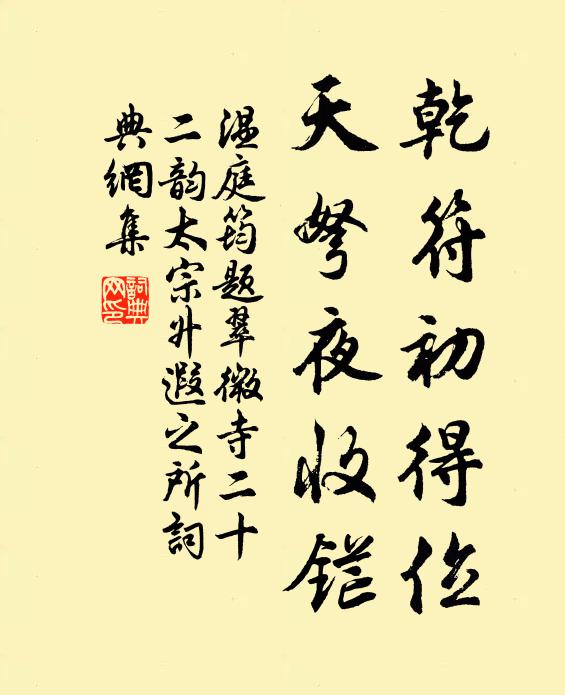 乾符初得位
天弩夜收鋩
温庭筠題翠微寺二十
二韵太宗升遐之所詞
典網集
詞典
网印